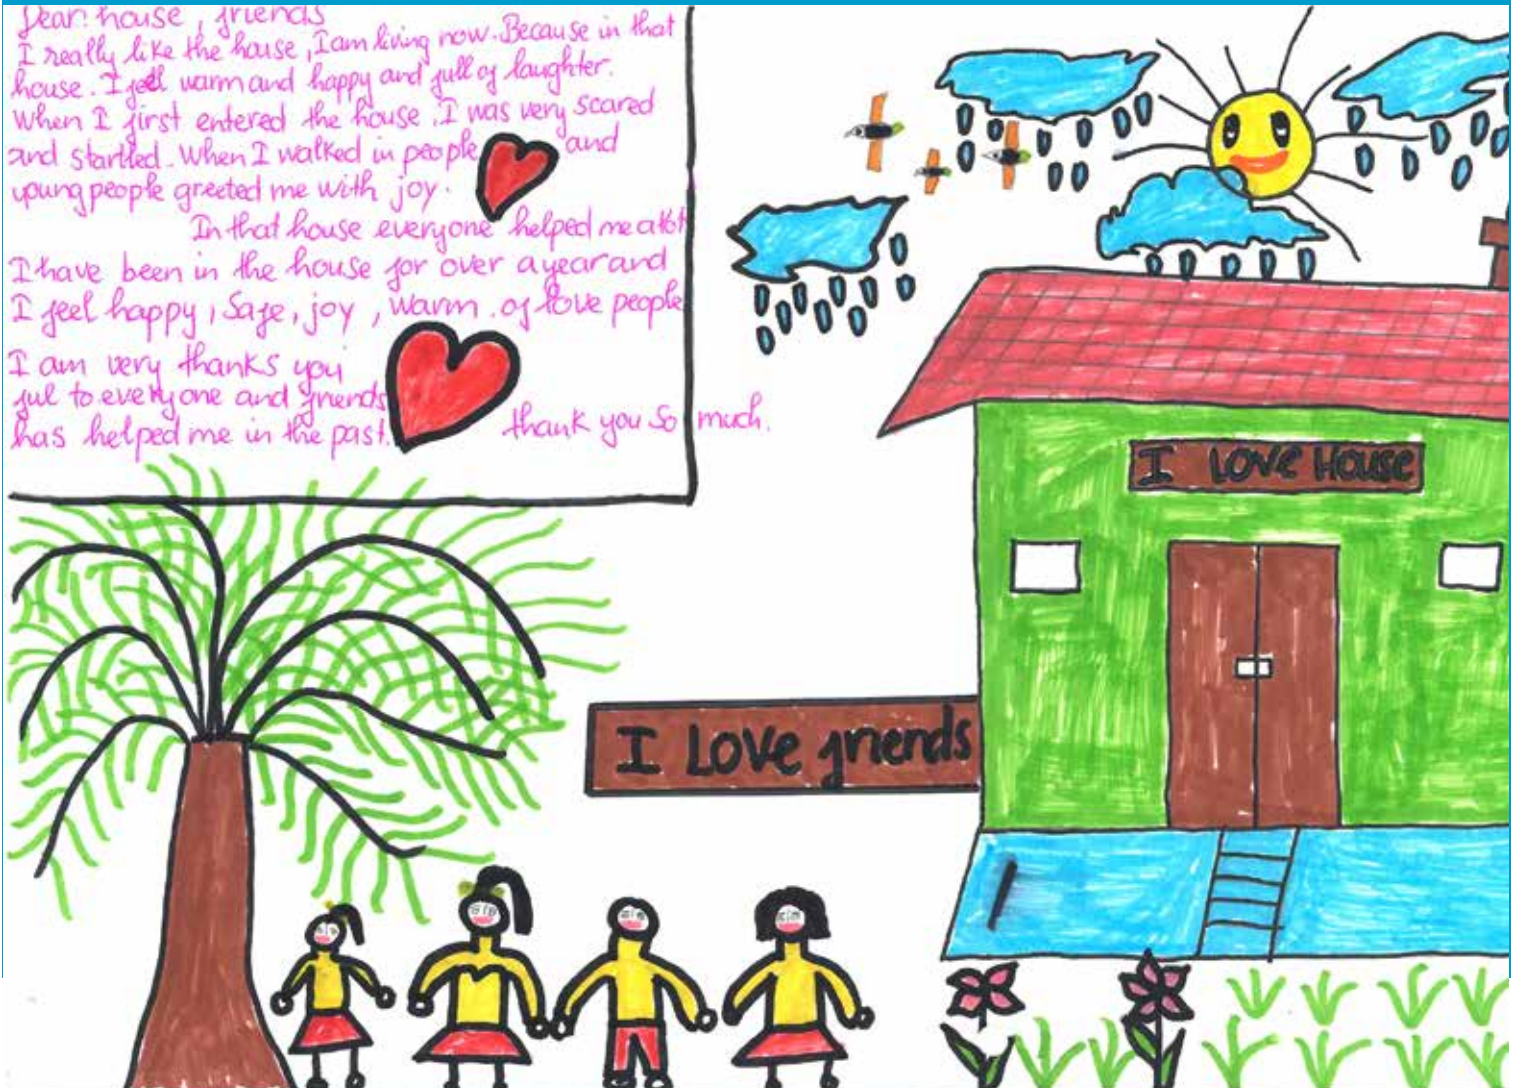 Dear house, friends
I really like the house, I am living now. Because in that
house. I feel warm and happy and full of laughter.
When I first entered the house, I was very scared
and startled. When I walked in people and
young people greeted me with joy.
In that house everyone helped me a lot
I have been in the house for over a year and
I feel happy, Safe, joy, warm. of love people
I am very thanks you
ful to everyone and friends
has helped me in the past.
thank you so much.
I LOVE HOUSE
I LOVE friends